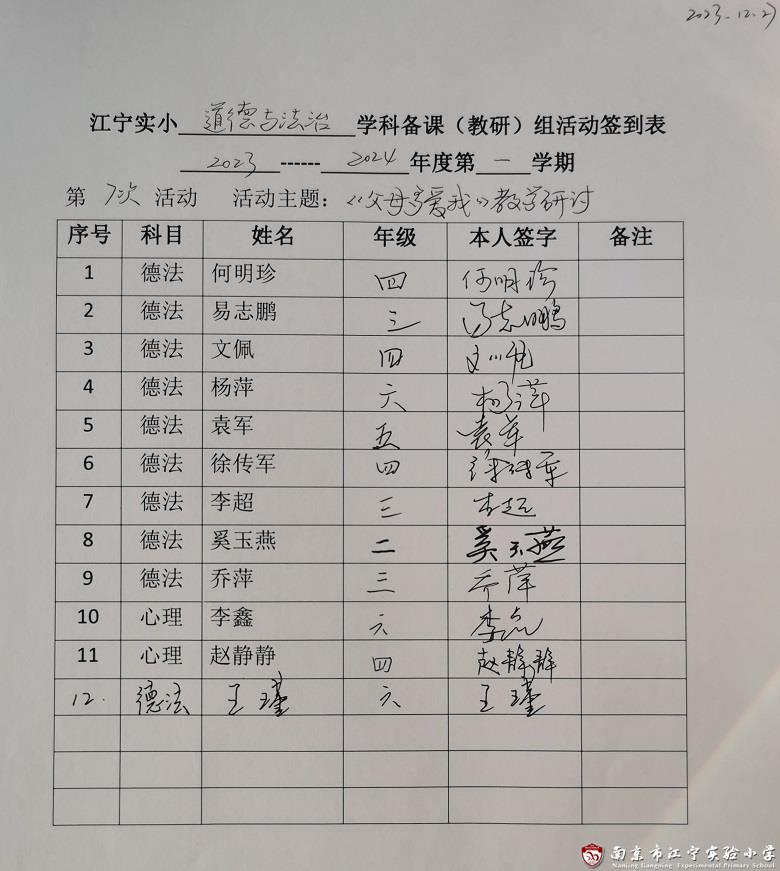 2023.12.27
江宁实小 道德与法治 学科备课（教研）组活动签到表
2023 ------ 2024 年度第 一 学期
第 7次 活动 活动主题：《父母多爱我》教学研讨
序号 科目 姓名 年级 本人签字 备注
1 德法 何明珍 四 何明珍
2 德法 易志鹏 三 易志鹏
3 德法 文佩 四 文佩
4 德法 杨萍 六 杨萍
5 德法 袁军 五 袁军
6 德法 徐传军 四 徐传军
7 德法 李超 三 李超
8 德法 奚玉燕 二 奚玉燕
9 德法 乔萍 三 乔萍
10 心理 李鑫 六 李鑫
11 心理 赵静静 四 赵静静
12. 德法 王瑾 六 王瑾
南京市江宁实验小学
Nanjing Jiangning Experimental Primary School